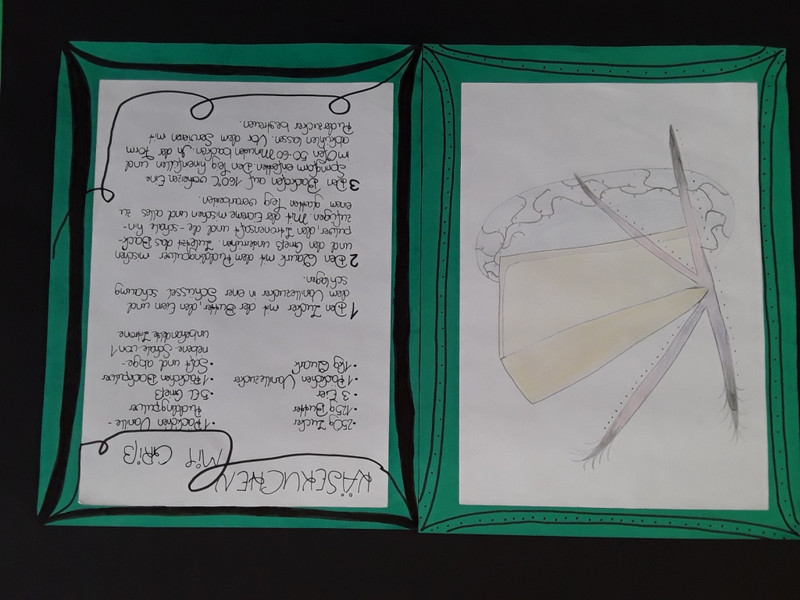 KÄSEKUCHEN MIT GRIß
•250g Zucker
•125g Butter
•3 Eier
•1 Päckchen Vanillezucker
•1kg Quark
•1 Päckchen Vanille-
Puddingpulver
•5 EL Grieß
•1 Päckchen Backpulver
•Saft und abge-
riebene Schale von 1
unbehandelte Zitrone
1 Den Zucker mit der Butter, den Eiern und
dem Vanillezucker in einer Schüssel schaumig
schlagen.
2 Den Quark mit dem Puddingpulver mischen
und den Grieß unterrühren. Zuletzt das Back-
pulver, den Zitronensaft und die -schale hin-
zufügen. Mit der Eicreme mischen und alles zu
einem glatten Teig verarbeiten.
3 Den Backofen auf 160°C vorheizen. Eine
Springform einfetten. Den Teig hineinfüllen und
im Ofen 50-60 Minuten backen. In der Form
abkühlen lassen. Vor dem Servieren mit
Puderzucker bestreuen.